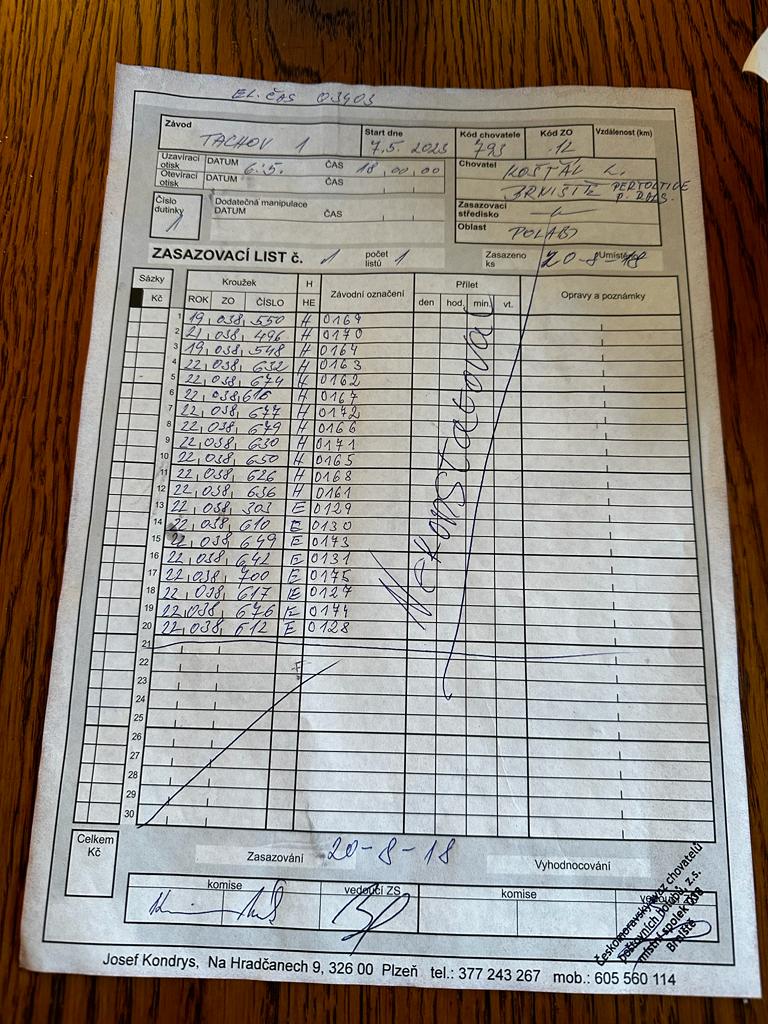 EL. ČAS 03403
Závod TACHOV 1 Start dne 7.5. 2023 Kód chovatele 793 Kód ZO 12 Vzdálenost (km)
Uzavírací otisk DATUM 6.5. ČAS 18,00,00
Otevírací otisk DATUM ČAS
Chovatel KOŠŤÁL L.
BRNIŠTĚ PERTOLTICE P. RALS.
Číslo dutinky 1 Dodatečná manipulace
DATUM ČAS
Zasazovací středisko
Oblast POLABÍ
ZASAZOVACÍ LIST č. 1 počet listů 1 Zasazeno ks 20-8-18 Umístě
Sázky Kroužek H Závodní označení Přílet Opravy a poznámky
Kč ROK ZO ČÍSLO HE den hod. min. vt.
1 19 038 550 H 0169
2 21 038 496 H 0170
3 19 038 548 H 0164
4 22 038 632 H 0163
5 22 038 674 H 0162
6 22 038 616 H 0167
7 22 038 677 H 0172
8 22 038 679 H 0166
9 22 038 630 H 0171
10 22 038 650 H 0165
11 22 038 626 H 0168
12 22 038 636 H 0161
13 22 038 303 E 0129
14 22 038 610 E 0130
15 22 038 649 E 0173
16 22 038 642 E 0131
17 22 038 700 E 0175
18 22 038 617 E 0127
19 22 038 676 E 0174
20 22 038 612 E 0128
21
22
23
24
25
26
27
28
29
30
Nekonstatoval
Celkem Kč
Zasazování 20-8-18 Vyhodnocování
komise vedoucí ZS komise
Českomoravský svaz chovatelů
poštovních holubů, z.s.
místní spolek 038
Brniště
Josef Kondrys, Na Hradčanech 9, 326 00 Plzeň tel.: 377 243 267 mob.: 605 560 114